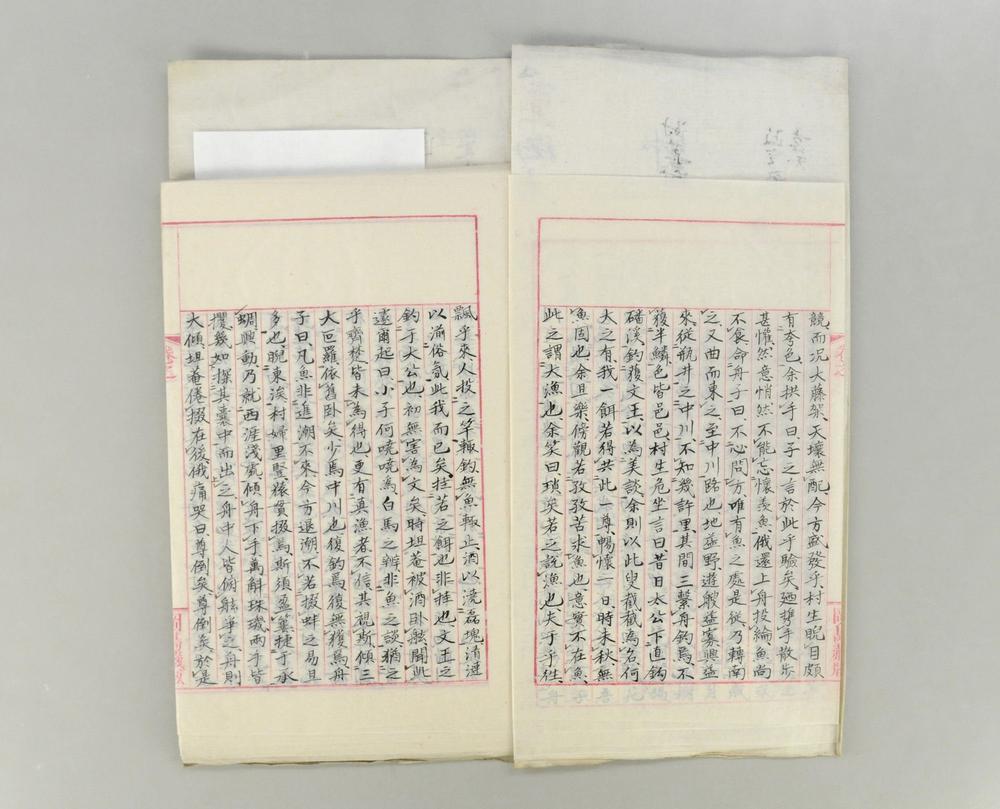 競而况大藤架天壤無配今方盛發乎村生睨目頗
有夸色余拱手曰子之言於此乎驗矣廼携手散步
甚懽然意悄然不能忘懷羨魚俄還上舟投綸魚尚
不食命舟子曰不必問方唯有魚之處是從乃轉南
之又曲而東之至中川路也地益野遊艘益寡興益
來從航井之中川不知幾許里其間三繫舟釣焉不
獲半鱗色皆邑邑村生危坐言曰昔日太公下直鈎
磻溪釣獲文王以為美談余則以此叟截截為名何
大之有我一餌若得共此一尊暢懷一日時未秋無
魚固也余且樂傍觀若孜孜苦求魚也意實不在魚
此之謂大漁也余笑曰瑣矣若之說漁也夫于乎徃
飄乎來人投之竿輙釣無魚輙止酒以洗磊塊清漣
以湔俗氣此我而已矣拄若之餌也非拄也文王之
釣于太公也初無害為文矣時坦菴被酒卧舷聞此
遠爾起曰小子何嘵嘵為白馬之辨非魚之談猶之
乎齊楚皆未為得也更有真漁者不信其視斯傾三
大叵羅依舊卧矣少焉中川也復釣焉復無獲焉舟
子曰凡魚非進潮不來今方退潮不若掇蚌之易且
多也睨東涘村婦里豎猿貫掇焉斯須盈簍捷于承
蜩興動乃就西涯淺處傾舟下手萬斛珠璣兩手皆
攫幾如探其囊中而出之舟中人皆俯舷爭之舟則
大傾坦菴倦掇在後俄痛哭曰尊倒矣尊倒矣於是